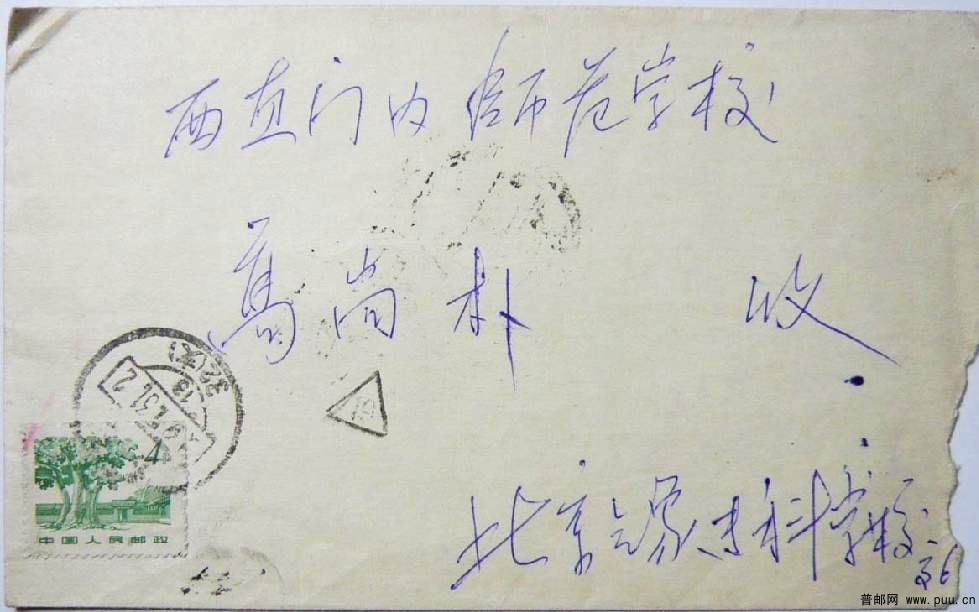 西直门内师范学校
葛尚朴 收
北京 专科学校
4
中国人民邮政
32(支)
18
普邮网 www.puu.cn